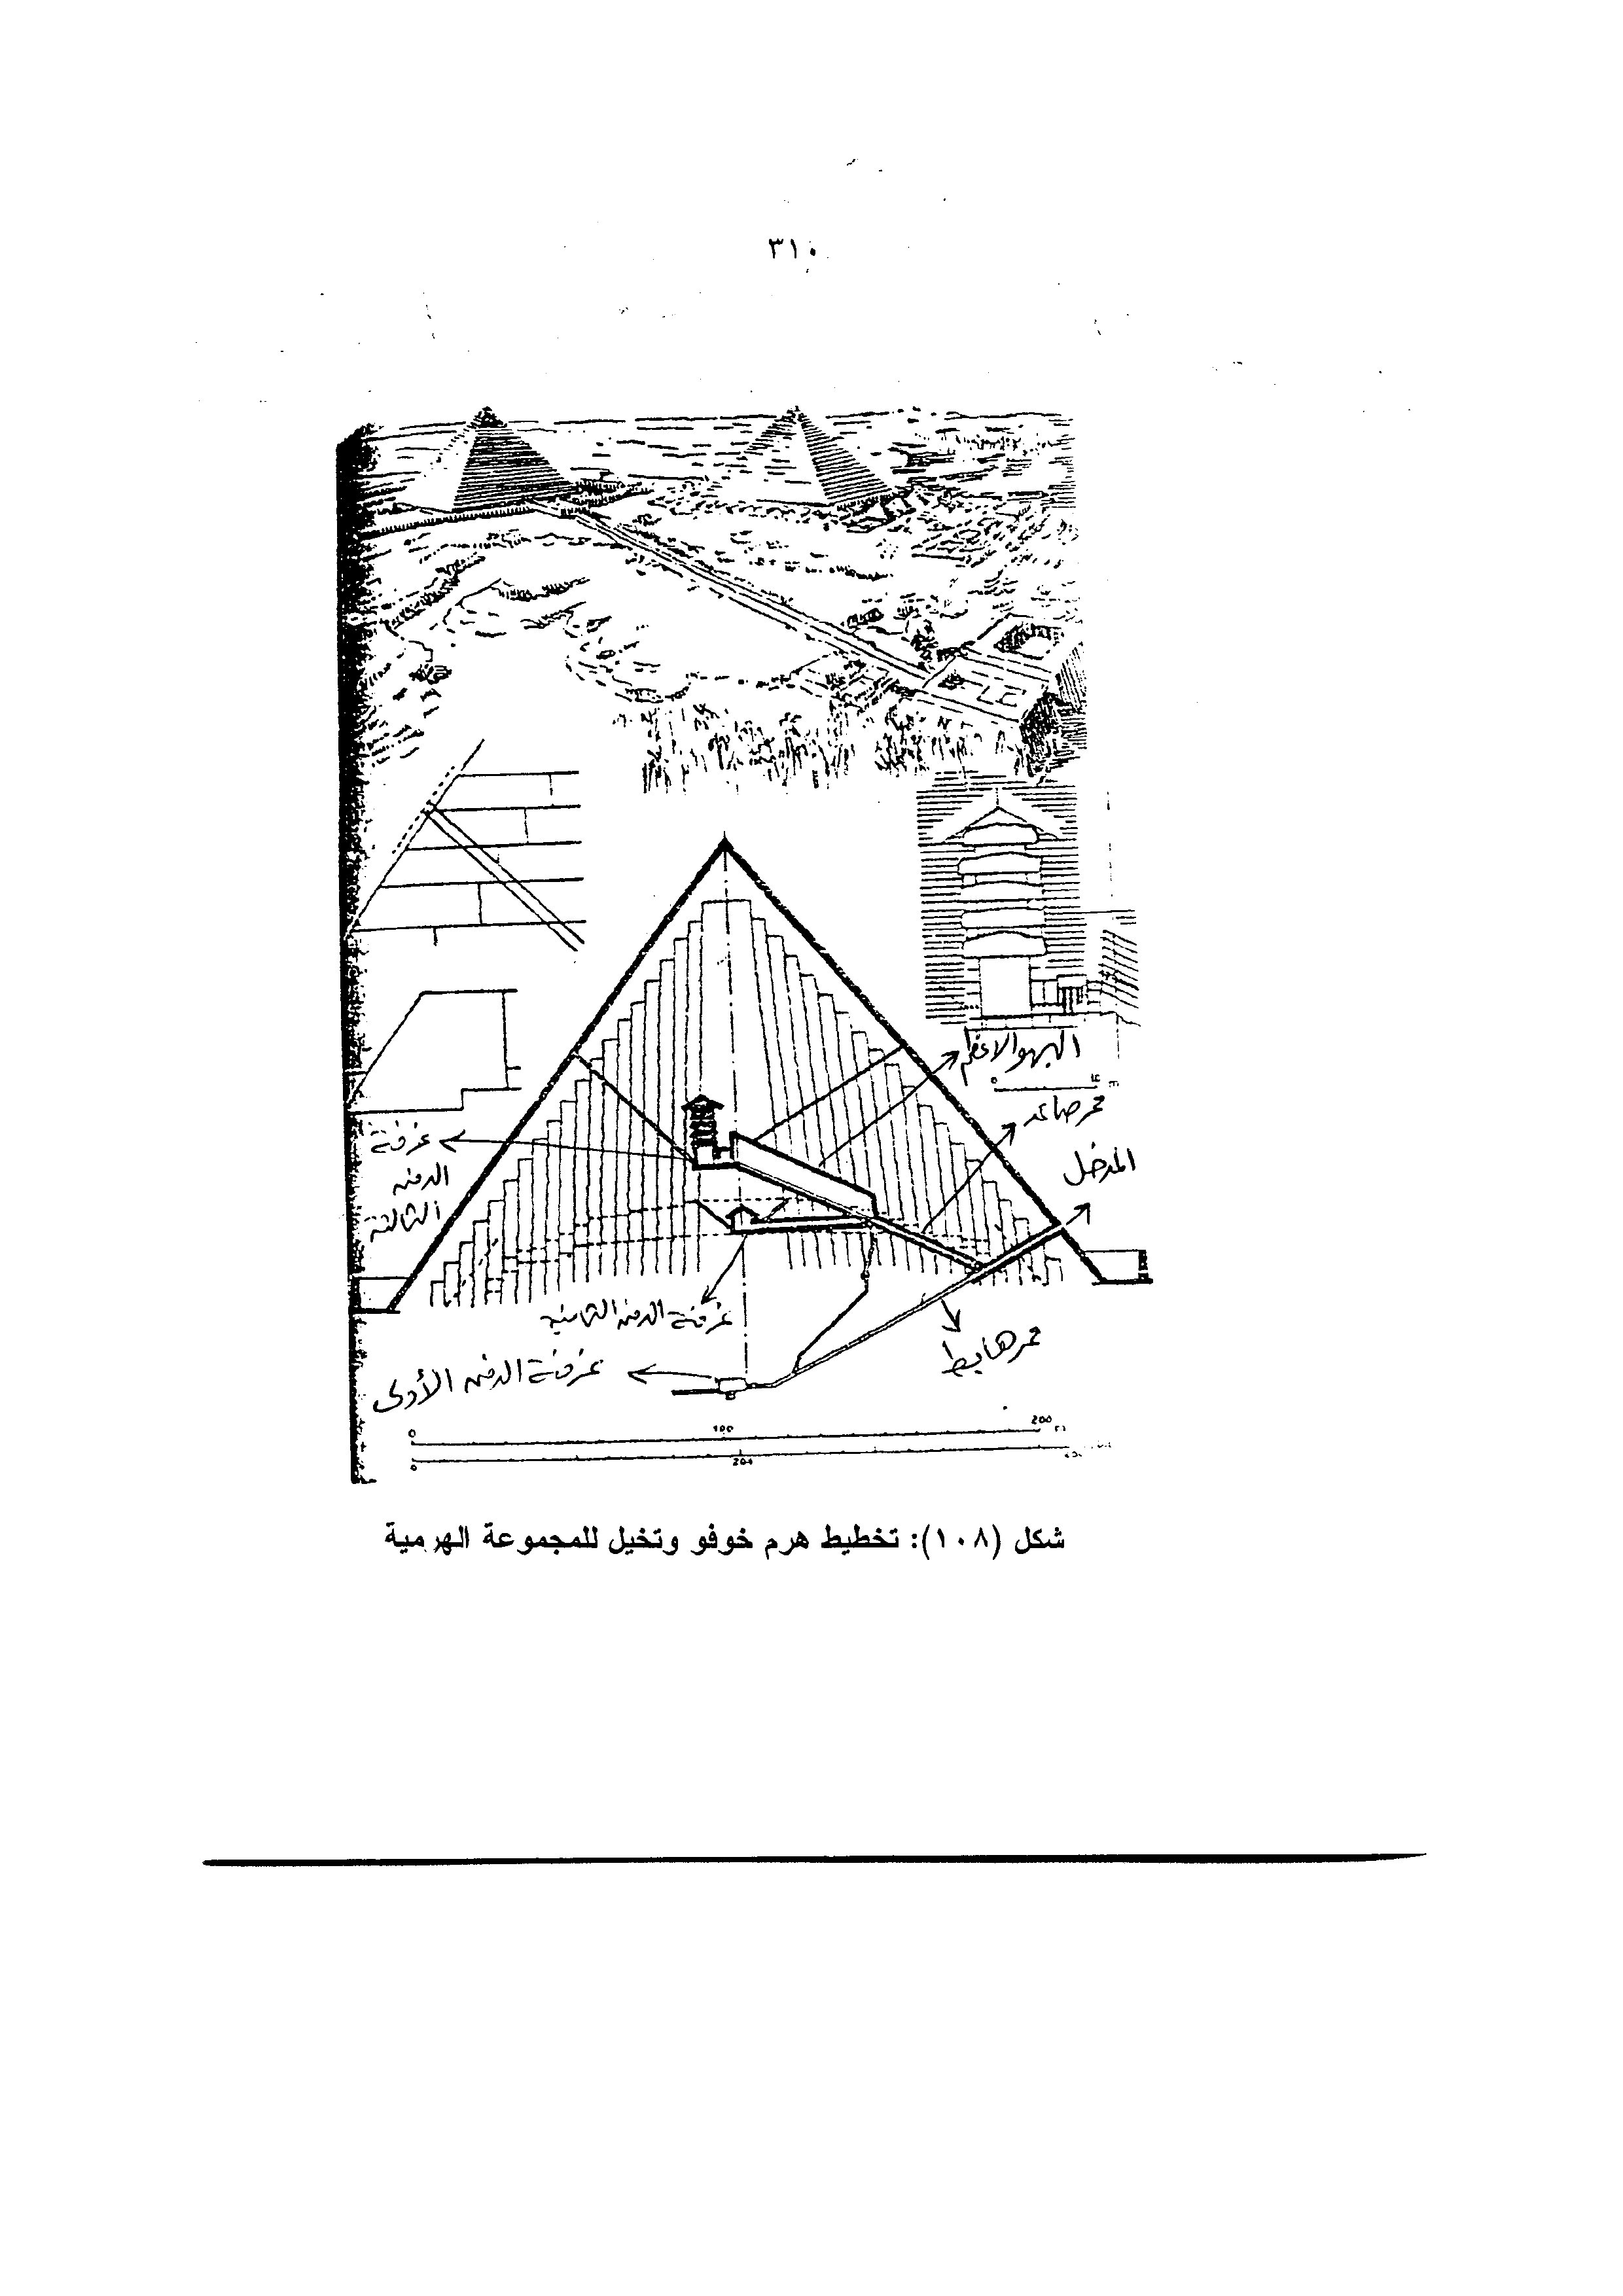 ٣١٠
البهو الاعظم
0 10 m
ممر صاعد
المدخل
غرفة
الدفن
الثالثة
غرفة الدفن الثانية
ممر هابط
غرفة الدفن الأولى
0 100 200 m
0 200
شكل (١٠٨): تخطيط هرم خوفو وتخيل للمجموعة الهرمية